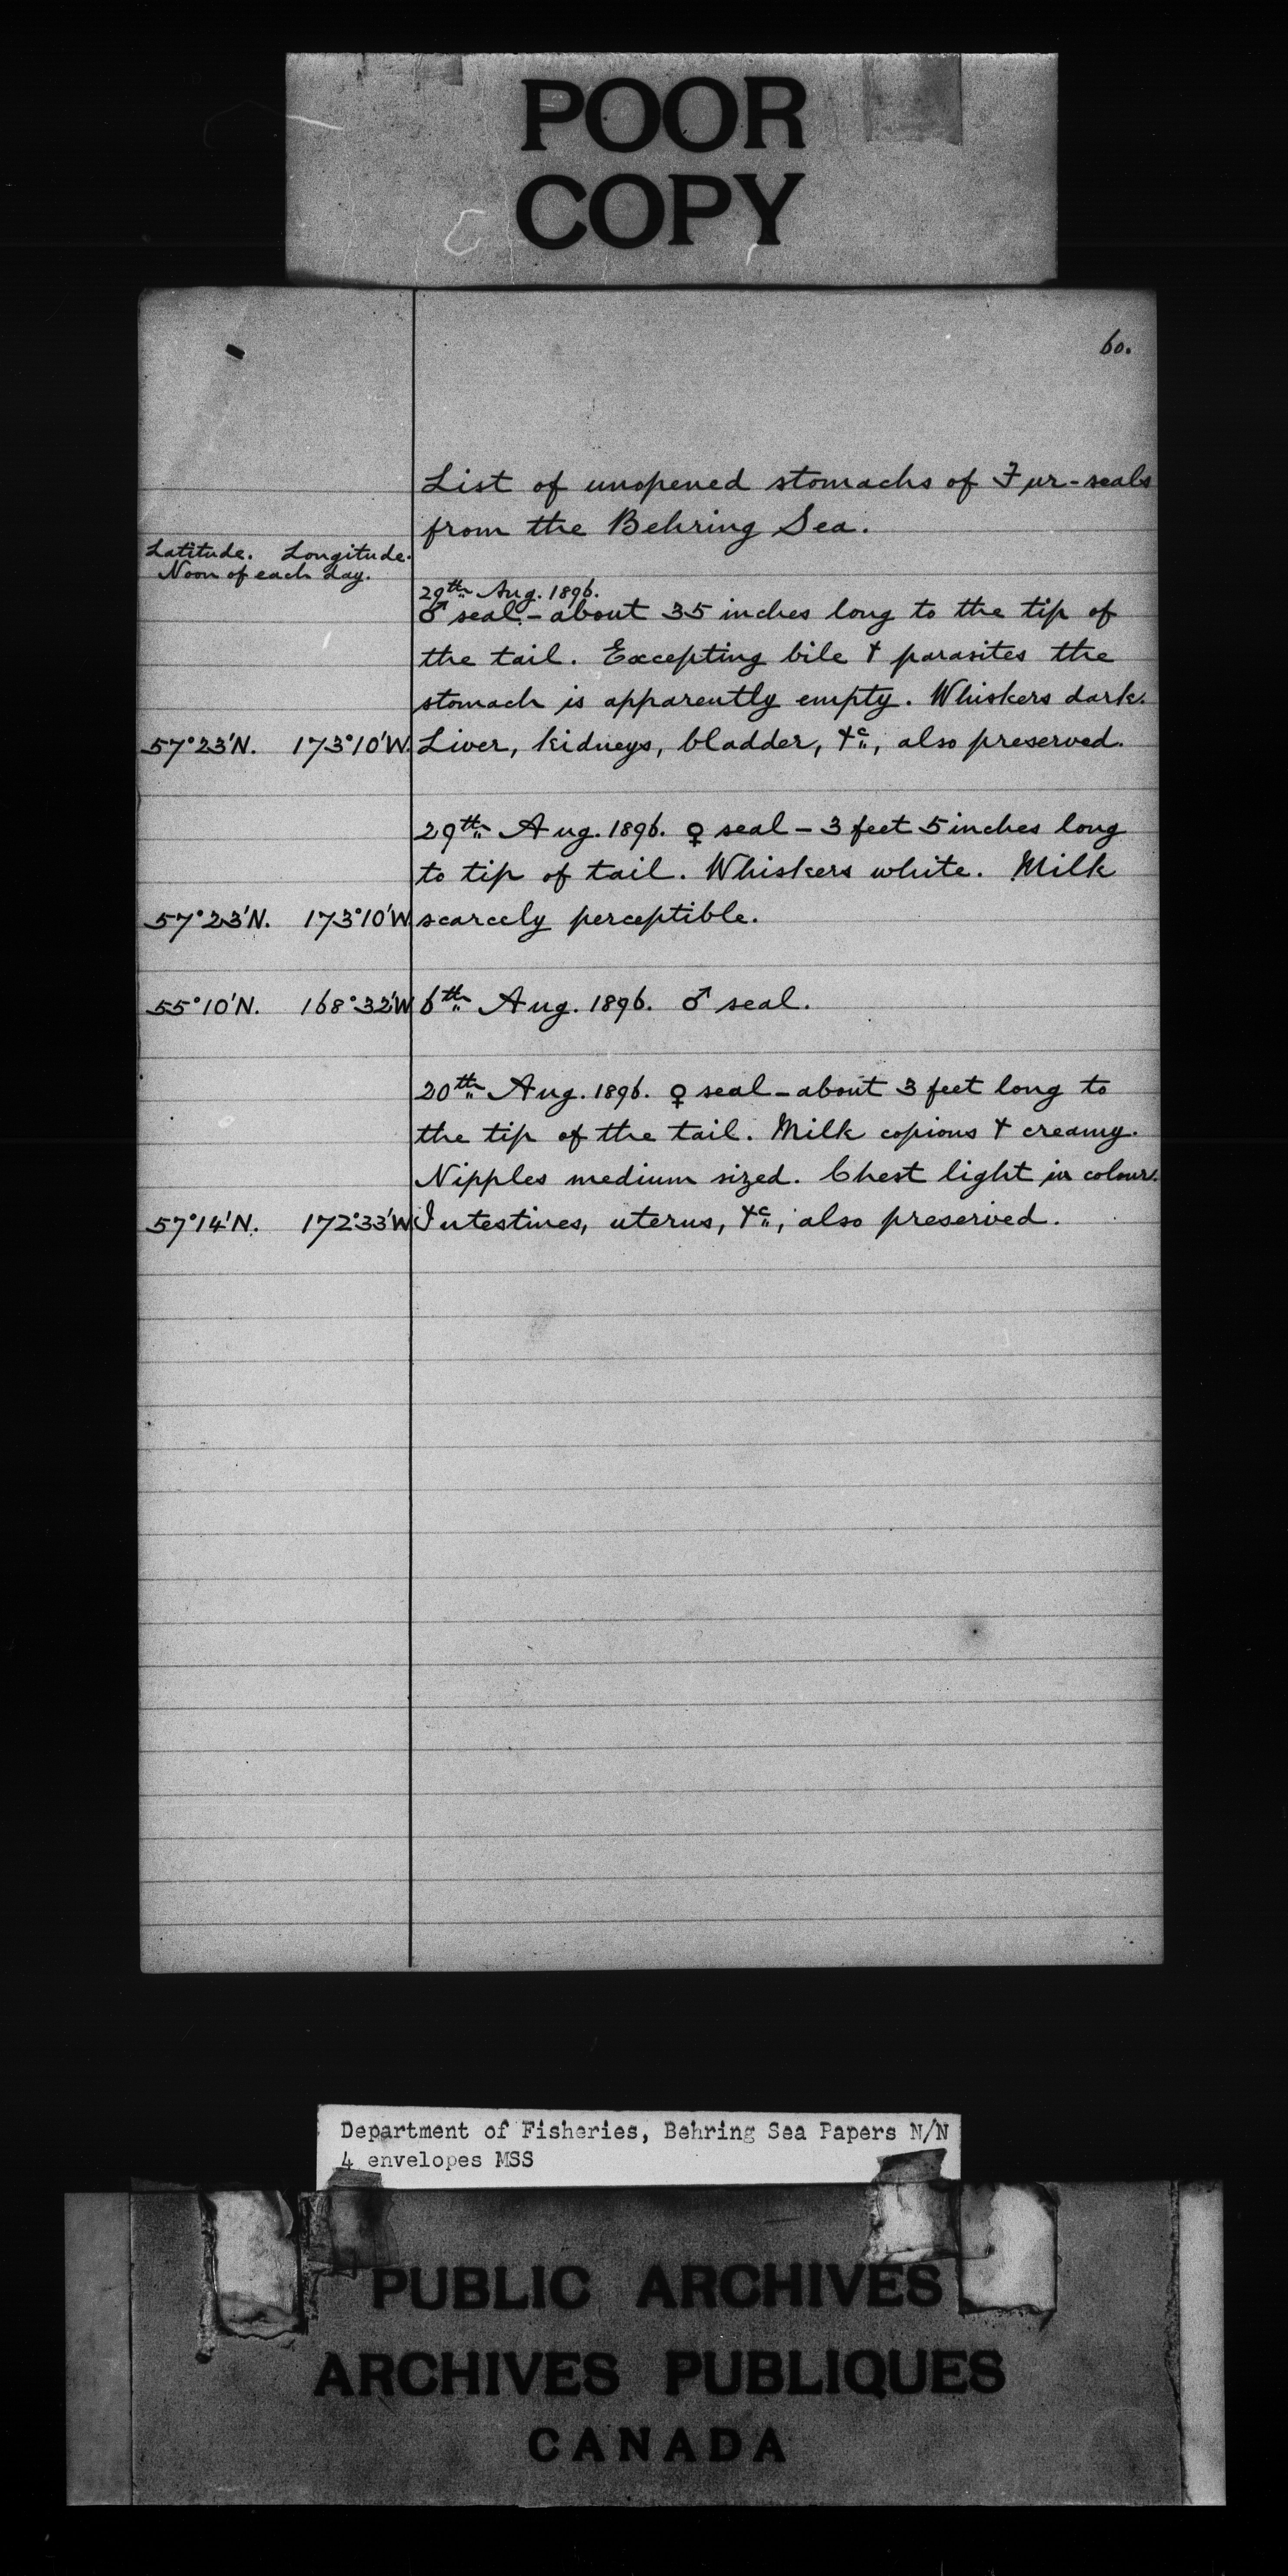 POOR
COPY
60.
List of unopened stomachs of Fur-seals
from the Behring Sea.
Latitude. Longitude.
Noon of each day.
29th Aug. 1896.
♂ seal - about 35 inches long to the tip of
the tail. Excepting bile & parasites the
stomach is apparently empty. Whiskers dark.
57°23'N. 173°10'W. Liver, kidneys, bladder, &c, also preserved.
29th Aug. 1896. ♀ seal - 3 feet 5 inches long
to tip of tail. Whiskers white. Milk
57°23'N. 173°10'W scarcely perceptible.
55°10'N. 168°32'W 6th Aug. 1896. ♂ seal.
20th Aug. 1896. ♀ seal - about 3 feet long to
the tip of the tail. Milk copious & creamy.
Nipples medium sized. Chest light in colour.
57°14'N. 172°33'W Intestines, uterus, &c, also preserved.
Department of Fisheries, Behring Sea Papers N/N
4 envelopes MSS
PUBLIC ARCHIVES
ARCHIVES PUBLIQUES
CANADA